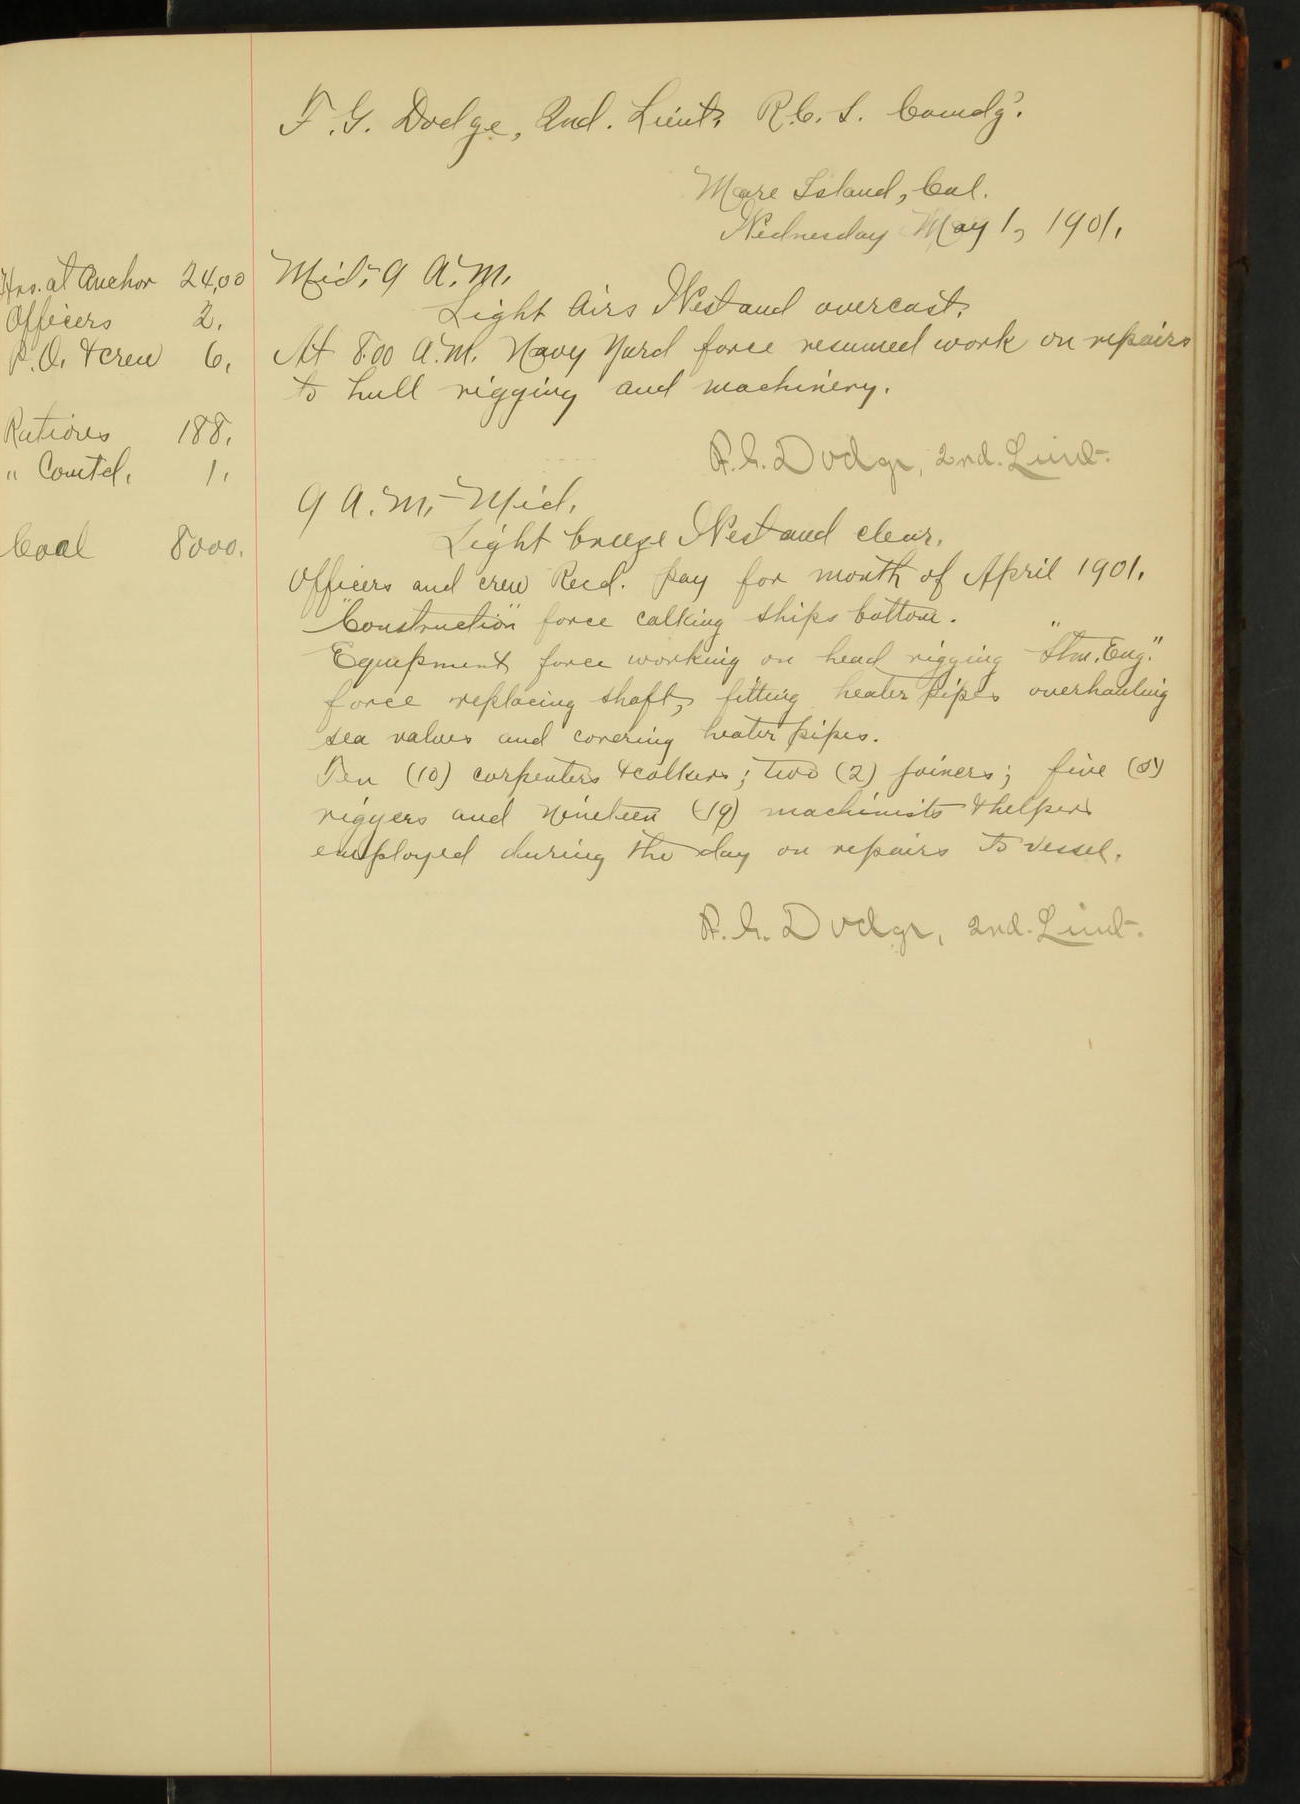 F. G. Dodge, 2nd. Lieut. R.C.S. Comdg.
Mare Island, Cal.
Wednesday May 1, 1901.
Hrs. at Anchor 24,00
Officers 2.
P.O. & crew 6.
Rations 188.
" Comtd. 1.
Coal 8000.
Mid.-9 A.M.
Light airs West and overcast.
At 8.00 A.M. Navy Yard force resumed work on repairs
to hull rigging and machinery.
F.G. Dodge, 2nd. Lieut.
9 A.M.-Mid.
Light breeze West and clear.
Officers and crew Recd. pay for month of April 1901.
"Construction" force calking ships bottom.
Equipment force working on head rigging "Stm. Eng."
force replacing shaft, fitting heater pipes overhauling
sea valves and covering heater pipes.
Ten (10) carpenters & calkers; two (2) joiners; five (5)
riggers and nineteen (19) machinists & helpers
employed during the day on repairs to vessel.
F.G. Dodge, 2nd. Lieut.